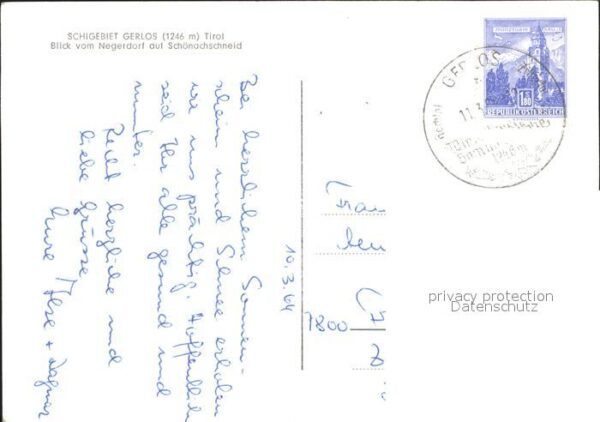 SCHIGEBIET GERLOS (1246 m) Tirol
Blick vom Negerdorf auf Schönachschneid
Bei herrlichem Sonnen-
schein und Schnee erholen
wir uns prächtig. Hoffentlich
seid Ihr alle gesund und
munter.
Recht herzliche und
liebe Grüsse
Eure Ilse +
10.3.64
Frau
7800
GERLOS
11.3.
1.80
REPUBLIK ÖSTERREICH
privacy protection
Datenschutz